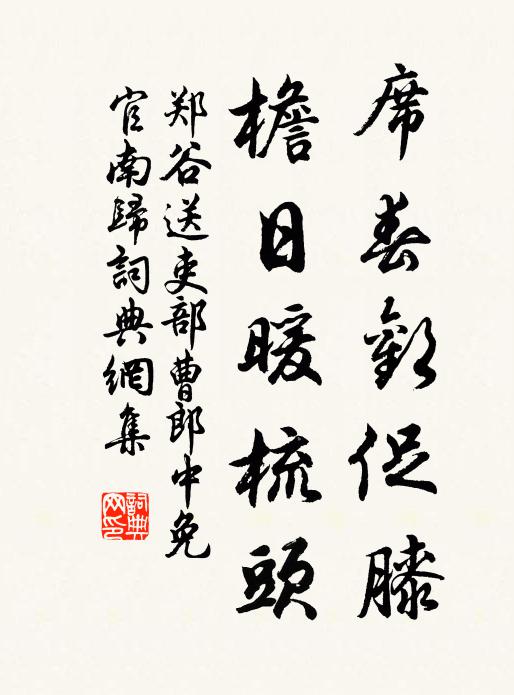 席春歡促膝
檐日暖梳頭
郑谷送吏部曹郎中免
官南歸詞典網集
詞典网印